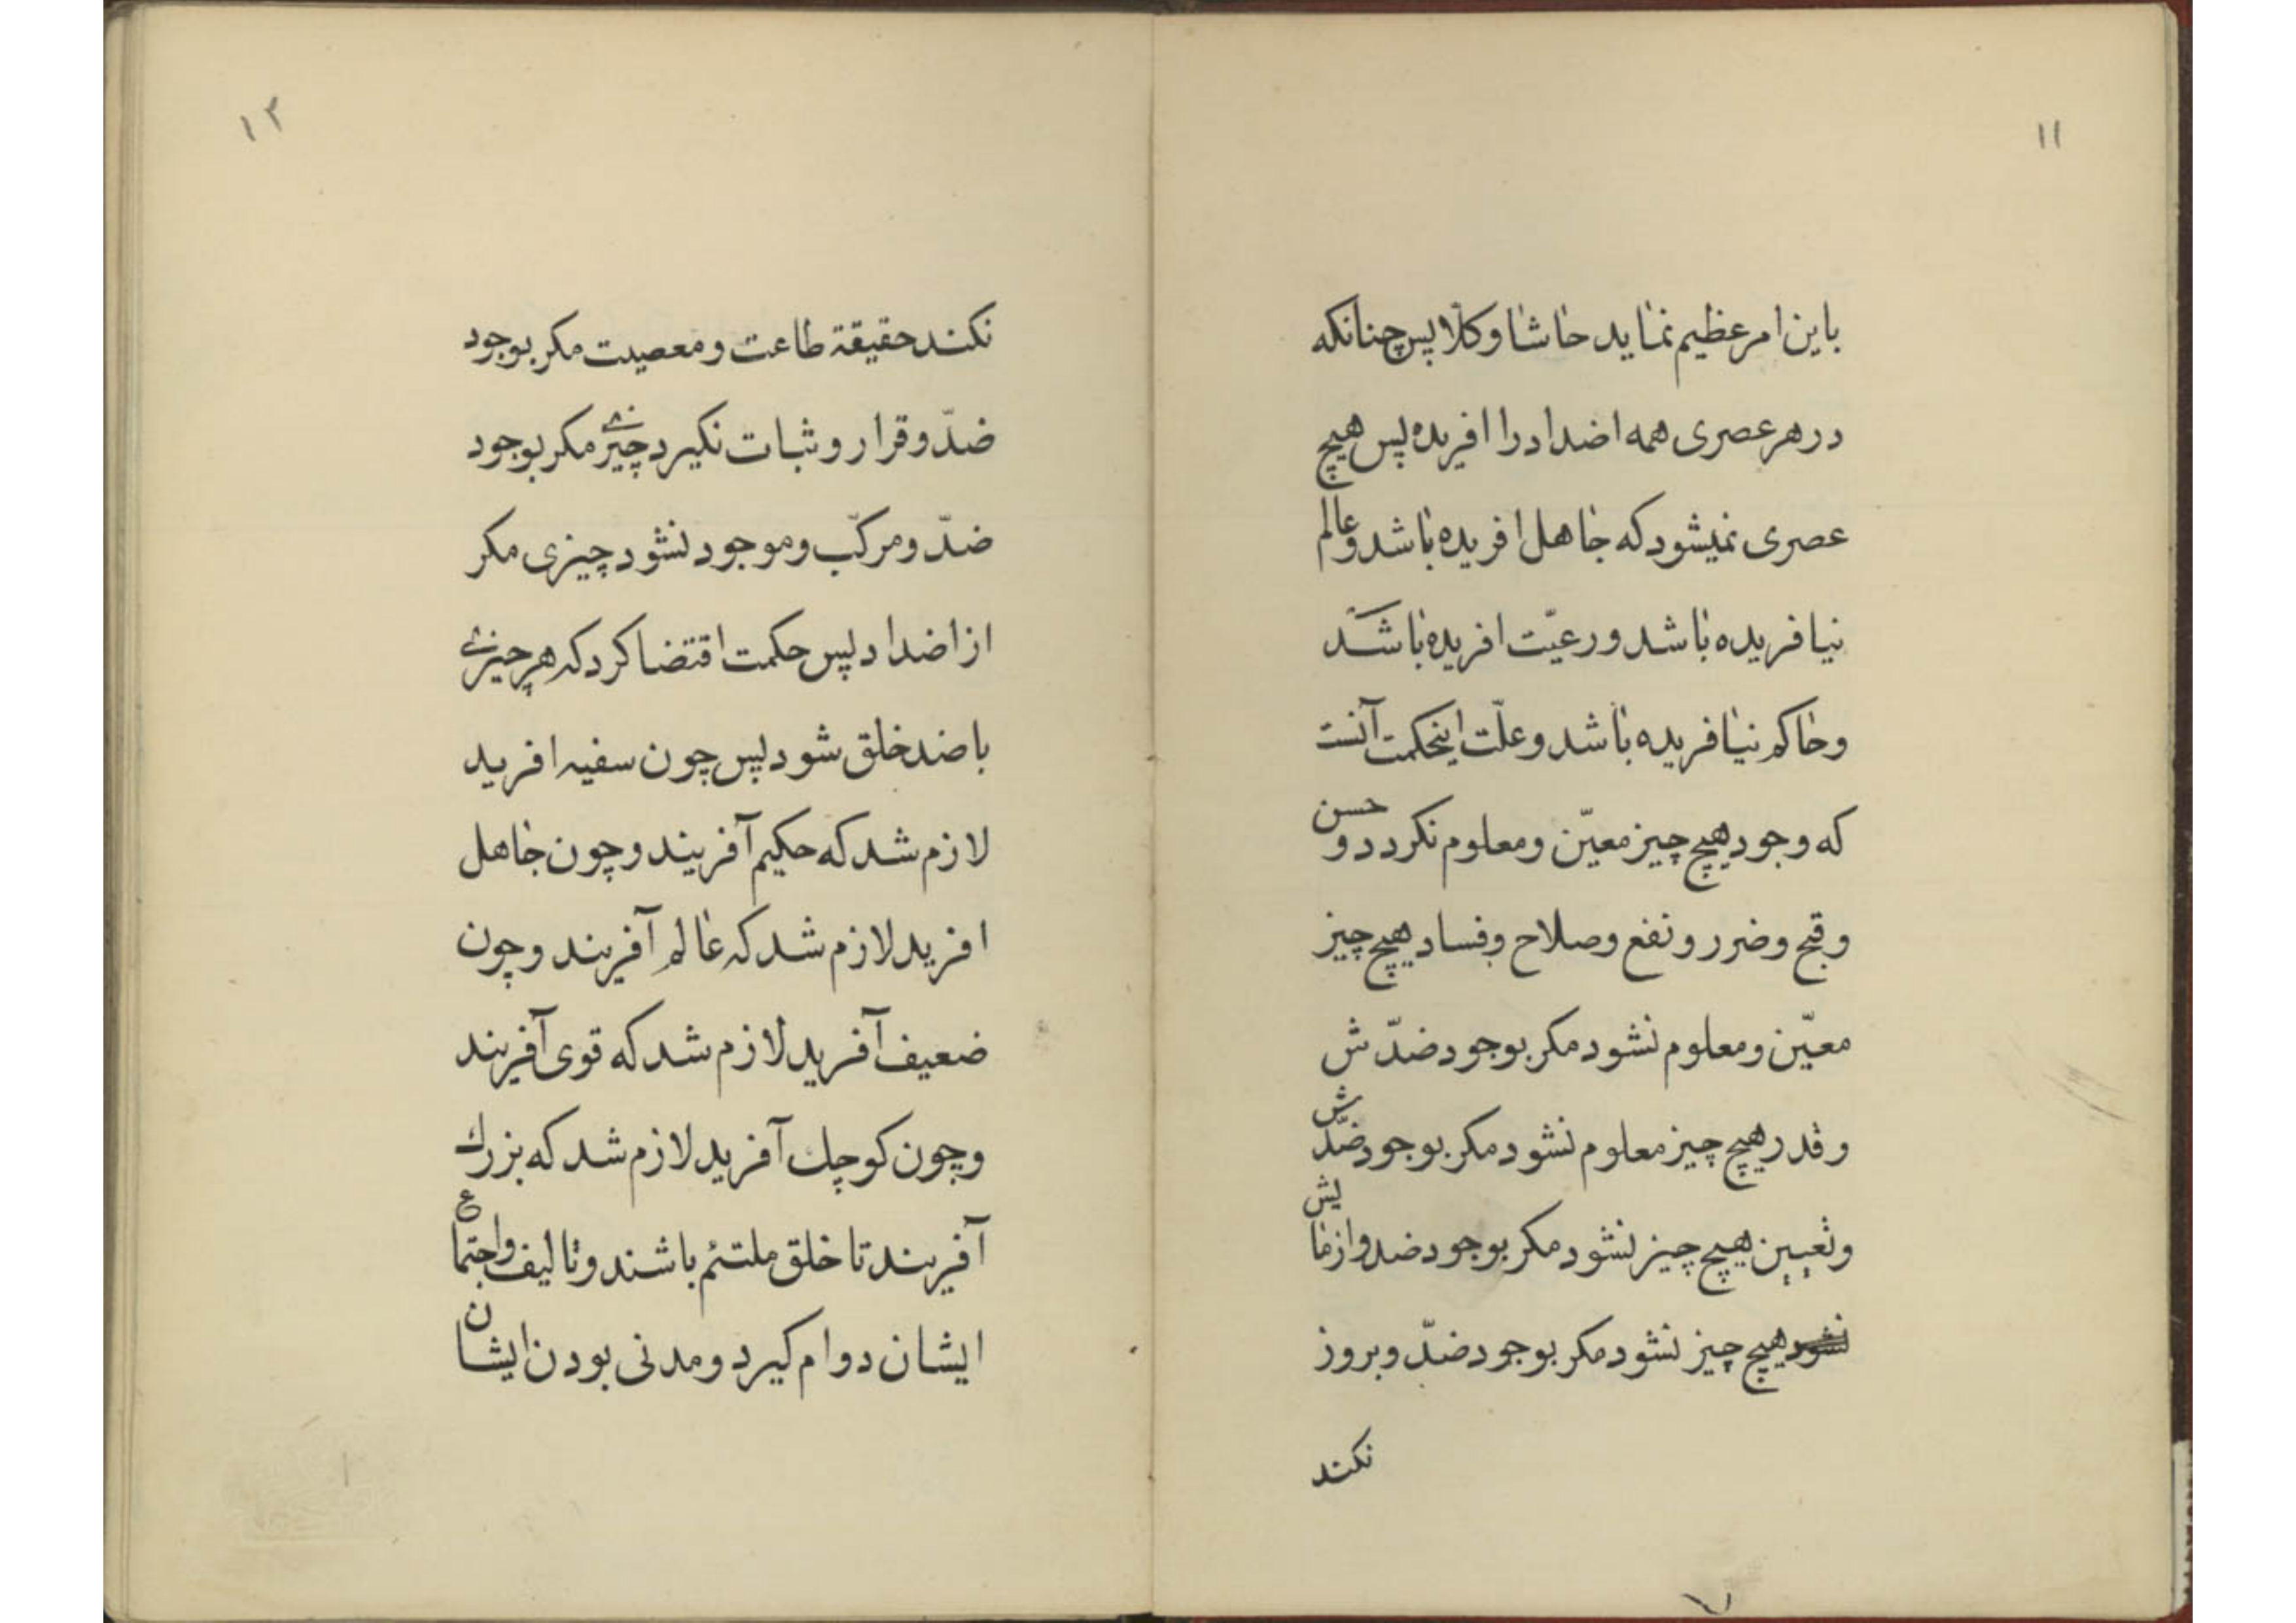 ۱۱
باین امر عظیم نماید حاشا وکلّا پس چنانکه
در هر عصری همه اضداد را افریده پس هیچ
عصری نمیشود که جاهل افریده باشد وعالم
نیافریده باشد ورعیّت افریده باشد
وحاکم نیافریده باشد وعلّت اینحکمت آنست
که وجود هیچ چیز معیّن ومعلوم نکردد و حسن
وقبح وضرر ونفع وصلاح وفساد هیچ چیز
معیّن ومعلوم نشود مکر بوجود ضدّش
وقدر هیچ چیز معلوم نشود مکر بوجود ضدّش
وتعیین هیچ چیز نشود مکر بوجود ضد وازمایش
نشود هیچ چیز نشود مکر بوجود ضدّ وبروز
نکند
۱۲
نکند حقیقة طاعت ومعصیت مکر بوجود
ضدّ وقرار وثبات نکیرد چیزی مکر بوجود
ضدّ ومرکّب وموجود نشود چیزی مکر
از اضداد پس حکمت اقتضا کرد که هر چیزی
با ضد خلق شود پس چون سفیه افرید
لازم شد که حکیم آفریند وچون جاهل
افرید لازم شد که عالم آفریند وچون
ضعیف آفرید لازم شد که قوی آفریند
وچون کوچك آفرید لازم شد که بزرك
آفریند تا خلق ملتئم باشند وتالیف واجتماع
ایشان دوام کیرد ومدنی بودن ایشان